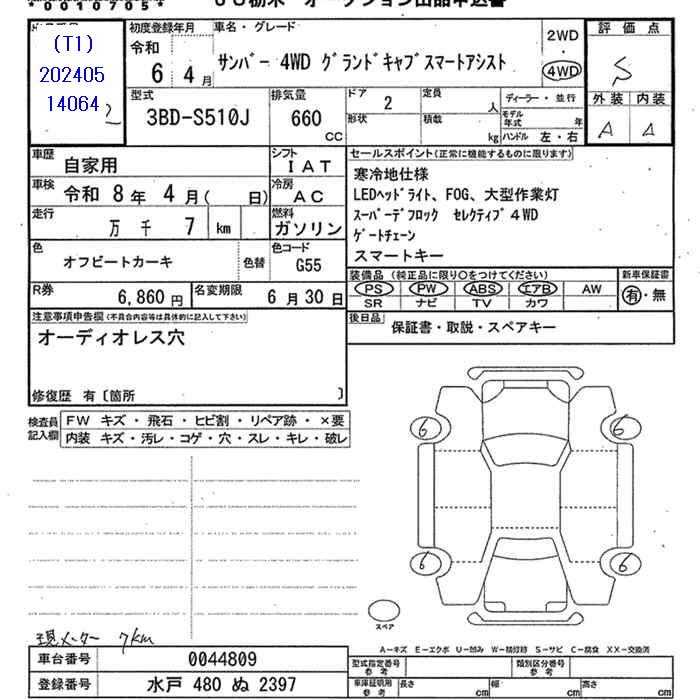 *0010705*
(T1)
202405
14064
初度登録年月
令和
6 4月
車名・グレード
サンバー 4WD グランドキャブスマートアシスト
2WD
・
4WD
評価点
S
外装 内装
A A
型式
3BD-S510J
排気量
660
CC
ドア
2
定員
人
形状
積載
kg
ディーラー・並行
モデル年式
年
ハンドル 左・右
車歴
自家用
シフト
IAT
車検
令和 8年 4月( 日)
冷房
AC
走行
万 千 7 km
燃料
ガソリン
色
オフビートカーキ
色替
色コード
G55
R券
6,860円
名変期限
6月30日
セールスポイント(正常に機能するものに限ります)
寒冷地仕様
LEDヘッドライト、FOG、大型作業灯
スーパーデフロック セレクティブ4WD
ゲートチェーン
スマートキー
装備品 (純正品に限り○をつけてください)
PS PW ABS エアB AW
SR ナビ TV カワ
新車保証書
有・無
後日品
保証書・取説・スペアキー
注意事項申告欄(不具合内容等は具体的に記入して下さい)
オーディオレス穴
修復歴 有〔箇所 〕
検査員
記入欄
FW キズ・飛石・ヒビ割・リペア跡・×要
内装 キズ・汚レ・コゲ・穴・スレ・キレ・破レ
6 6
6 6
スペア
現メーター 7km
A-キズ E-エクボ U-凹み W-補修跡 S-サビ C-腐食 XX-交換済
車台番号
0044809
登録番号
水戸 480 ぬ 2397
型式指定番号
参考
類別区分番号
参考
車庫証明用
参考
長さ cm
幅 cm
高さ cm